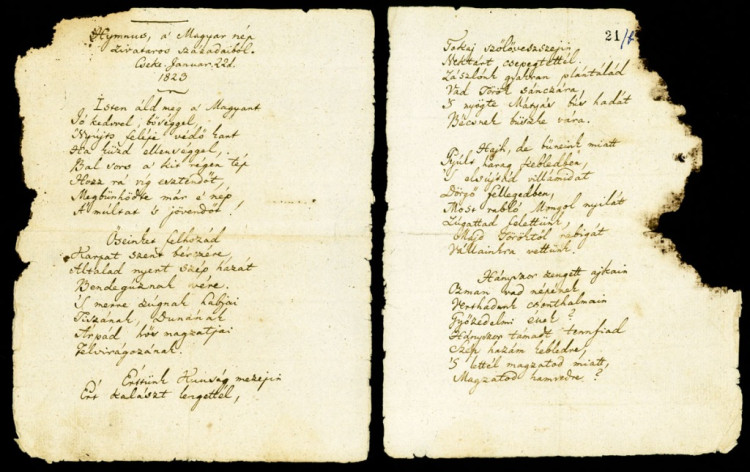 Hymnus, a' Magyar nép
Zivataros századaiból.
Cseke. Januar. 22d.
1823
Isten áld meg a' Magyart
Jó kedvvel, bőséggel,
Nyújts feléje védő kart
Ha küzd ellenséggel,
Bal sors a' kit régen tép
Hozz rá víg esztendőt,
Megbűnhődte már e' nép
A' multat 's jövendőt!
Őseinket felhozád
Kárpát szent bérczére,
Általad nyert szép hazát
Bendegúznak vére.
'S merre zúgnak habjai
Tiszának, Dunának
Árpád, hős magzatjai
Felvirágozának.
Értünk Kunság mezején
Ért kalászt lengettél,
21/1
Tokaj szőlővesszein
Nektárt csepegtettél.
Zászlónk gyakran plántálád
Vad Török sánczára,
'S nyögte Mátyás bús hadát
Bécsnek büszke vára.
Hajh, de bűneink miatt
Gyúlt harag kebledben,
'S elsújtád villámidat
Dörgő fellegedben,
Most rabló Mongol nyilát
Zúgattad felettünk,
Majd Töröktől rabigát
Vállainkra vettünk.
Hányszor zengett ajkain
Ozman vad népének
Vert hadunk csonthalmain
Győzedelmi ének?
Hányszor támadt tennfiad
Szép hazám kebledre,
'S lettél magzatod miatt,
Magzatod hamvedre?